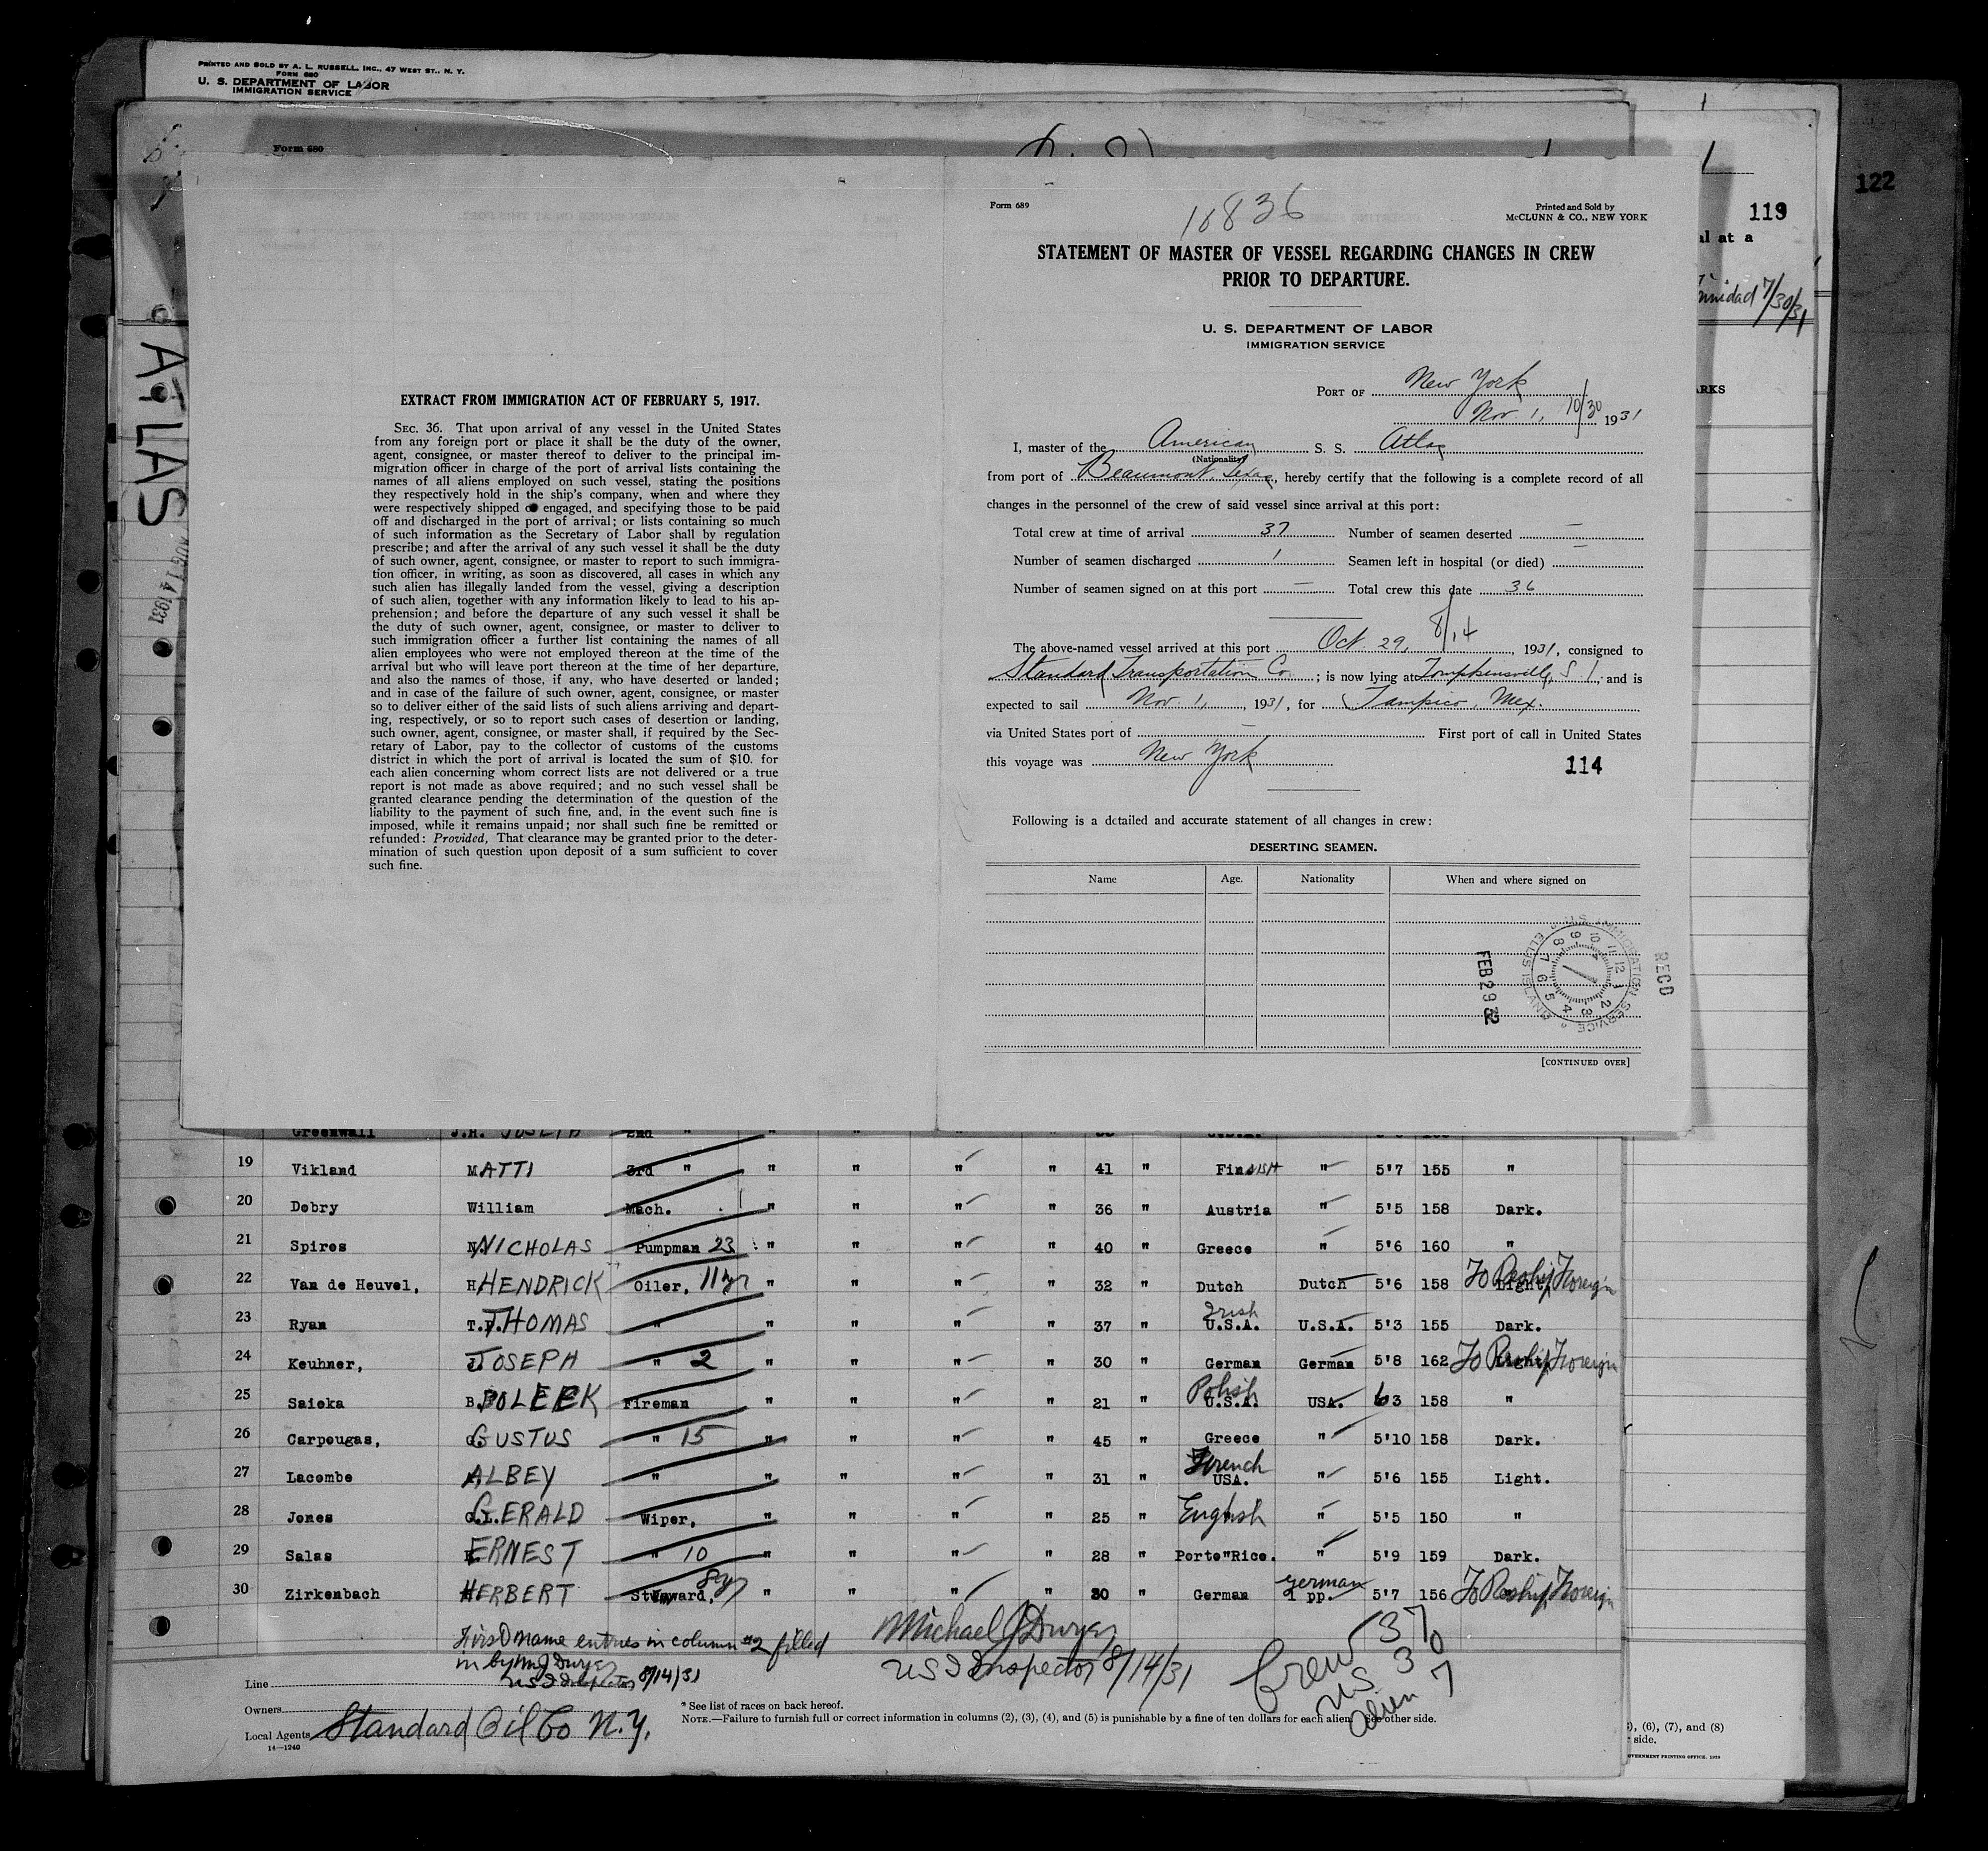 PRINTED AND SOLD BY A. L. RUSSELL, INC., 47 WEST ST., N. Y.
FORM 680
U. S. DEPARTMENT OF LABOR
IMMIGRATION SERVICE
Form 680
122
119
al at a
Trinidad 7/30/31
ARKS
ATLAS
AUG 14 1931
EXTRACT FROM IMMIGRATION ACT OF FEBRUARY 5, 1917.
SEC. 36. That upon arrival of any vessel in the United States
from any foreign port or place it shall be the duty of the owner,
agent, consignee, or master thereof to deliver to the principal im-
migration officer in charge of the port of arrival lists containing the
names of all aliens employed on such vessel, stating the positions
they respectively hold in the ship's company, when and where they
were respectively shipped or engaged, and specifying those to be paid
off and discharged in the port of arrival; or lists containing so much
of such information as the Secretary of Labor shall by regulation
prescribe; and after the arrival of any such vessel it shall be the duty
of such owner, agent, consignee, or master to report to such immigra-
tion officer, in writing, as soon as discovered, all cases in which any
such alien has illegally landed from the vessel, giving a description
of such alien, together with any information likely to lead to his ap-
prehension; and before the departure of any such vessel it shall be
the duty of such owner, agent, consignee, or master to deliver to
such immigration officer a further list containing the names of all
alien employees who were not employed thereon at the time of the
arrival but who will leave port thereon at the time of her departure,
and also the names of those, if any, who have deserted or landed;
and in case of the failure of such owner, agent, consignee, or master
so to deliver either of the said lists of such aliens arriving and depart-
ing, respectively, or so to report such cases of desertion or landing,
such owner, agent, consignee, or master shall, if required by the Sec-
retary of Labor, pay to the collector of customs of the customs
district in which the port of arrival is located the sum of $10. for
each alien concerning whom correct lists are not delivered or a true
report is not made as above required; and no such vessel shall be
granted clearance pending the determination of the question of the
liability to the payment of such fine, and, in the event such fine is
imposed, while it remains unpaid; nor shall such fine be remitted or
refunded: Provided, That clearance may be granted prior to the deter-
mination of such question upon deposit of a sum sufficient to cover
such fine.
Form 689
10836
Printed and Sold by
McCLUNN & CO., NEW YORK
STATEMENT OF MASTER OF VESSEL REGARDING CHANGES IN CREW
PRIOR TO DEPARTURE.
U. S. DEPARTMENT OF LABOR
IMMIGRATION SERVICE
PORT OF New York
Nov. 1, 10/30 1931
I, master of the American S. S. Atlas
(Nationality)
from port of Beaumont, Texas, hereby certify that the following is a complete record of all
changes in the personnel of the crew of said vessel since arrival at this port:
Total crew at time of arrival 37 Number of seamen deserted —
Number of seamen discharged 1 Seamen left in hospital (or died) —
Number of seamen signed on at this port — Total crew this date 36
The above-named vessel arrived at this port Oct. 29, 8/14, 1931, consigned to
Standard Transportation Co.; is now lying at Tompkinsville, S I, and is
expected to sail Nov. 1, 1931, for Tampico, Mex.
via United States port of — First port of call in United States
this voyage was New York
114
Following is a detailed and accurate statement of all changes in crew:
DESERTING SEAMEN.
Name Age. Nationality When and where signed on
U.S. IMMIGRATION SERVICE ELLIS ISLAND
RECD
FEB 29 32
[CONTINUED OVER]
Greenwall J.H. JOSEPH 2nd "
19 Vikland MATTI 3rd " " " " " 41 " Finnish " 5'7 155 "
20 Dobry William Mach. " " " " 36 " Austria " 5'5 158 Dark.
21 Spires N. NICHOLAS Pumpman 23 " " " " 40 " Greece " 5'6 160 "
22 Van de Heuvel, H HENDRICK Oiler, 11yr " " " " 32 " Dutch Dutch 5'6 158 Light, To Reship Foreign
23 Ryan T.F. THOMAS " " " " " 37 " Irish U.S.A. U.S.A. 5'3 155 Dark.
24 Keuhner, J JOSEPH " 2 " " " " 30 " German German 5'8 162 Light, To Reship Foreign
25 Saieka B. BOLEEK Fireman " " " " 21 " Polish U.S.A. USA. 63 158 "
26 Carpougas, G GUSTUS " 15 " " " " 45 " Greece " 5'10 158 Dark.
27 Lacombe ALBEY " " " " " 31 " French USA. " 5'6 155 Light.
28 Jones G.L. GERALD Wiper, " " " " 25 " English " 5'5 150 "
29 Salas ERNEST " 10 " " " " 28 " Porto Rico. " 5'9 159 Dark.
30 Zirkenbach HERBERT Steward, 8yr " " " " 30 " German German 1 pp. 5'7 156 To Reship Foreign
First name entries in column #2 filled
in by M J Dwyer
US I Inspector 8/14/31
Michael J Dwyer
US I Inspector 8/14/31
Crew 37
US 30
alien 7
Line
Owners
Local Agents Standard Oil Co N.Y.
14—1240
* See list of races on back hereof.
NOTE.—Failure to furnish full or correct information in columns (2), (3), (4), and (5) is punishable by a fine of ten dollars for each alien. See other side.
), (6), (7), and (8)
side.
GOVERNMENT PRINTING OFFICE. 1929